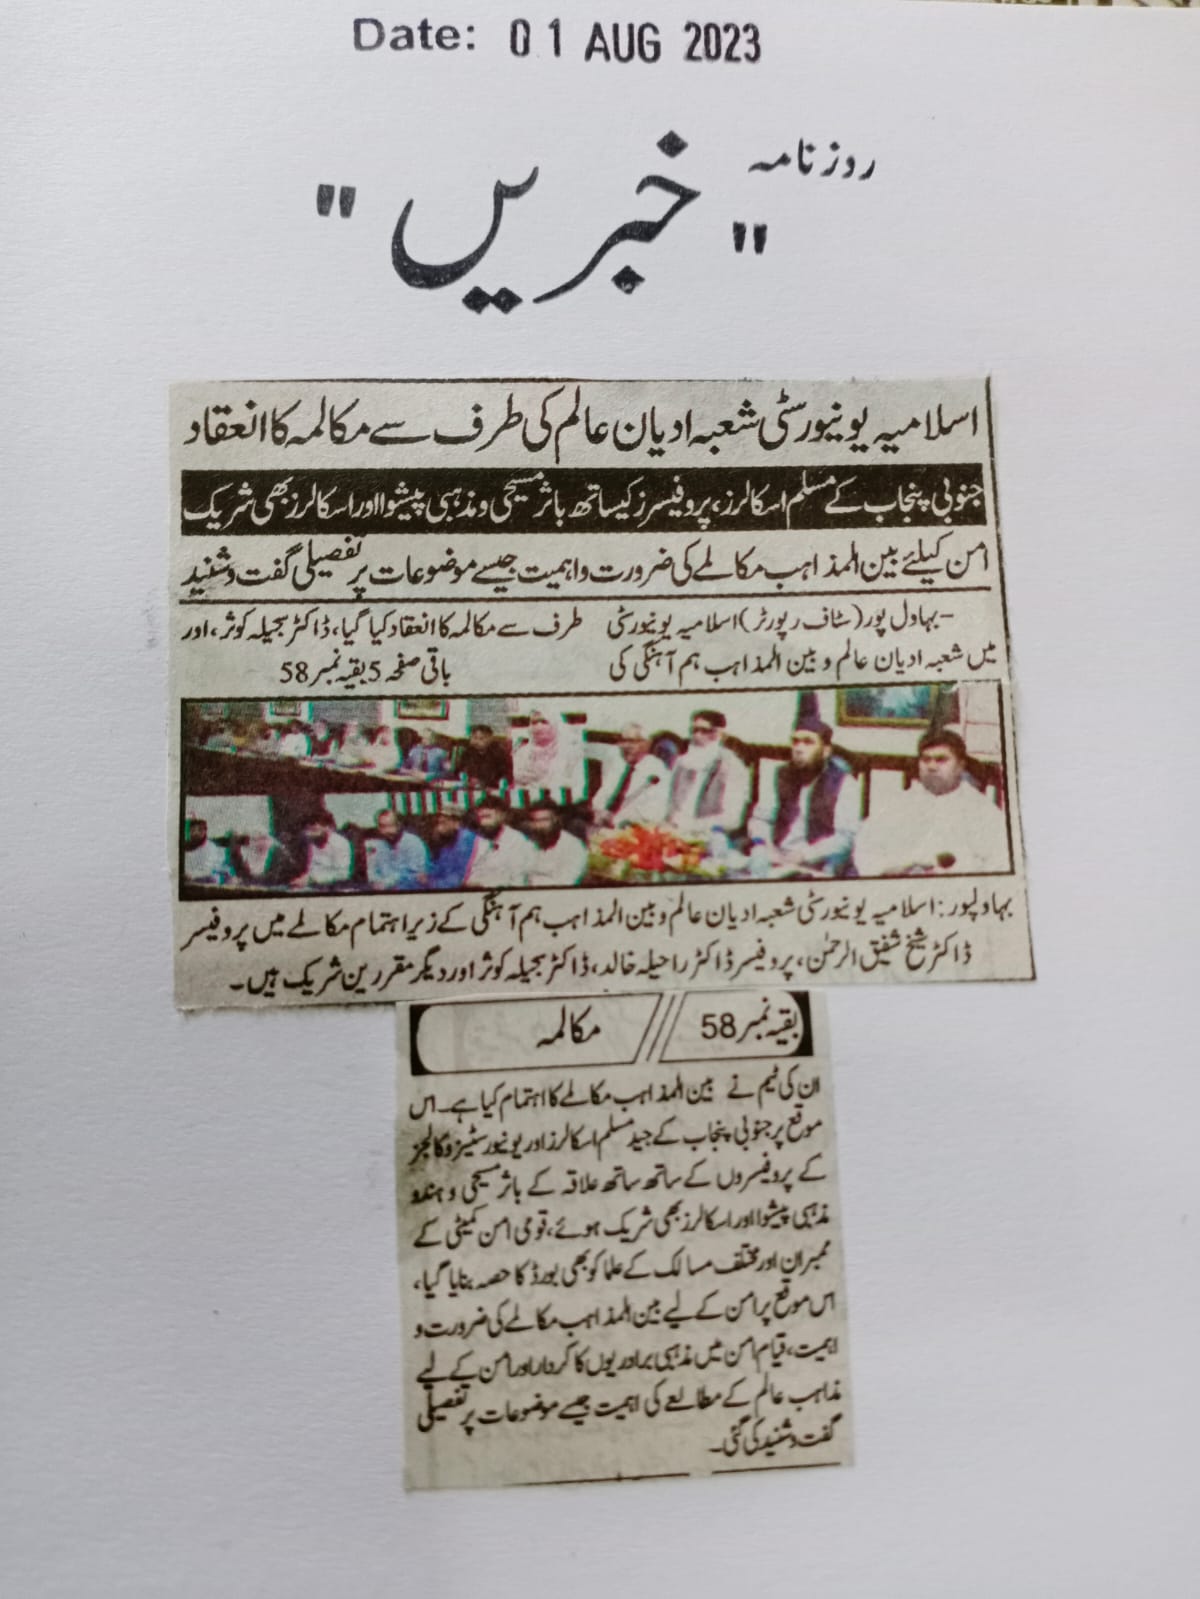 Date: 01 AUG 2023
روزنامہ
"خبریں"
اسلامیہ یونیورسٹی شعبہ ادیان عالم کی طرف سے مکالمہ کا انعقاد
جنوبی پنجاب کے مسلم اسکالرز، پروفیسرز کیساتھ باثر مسیحی و مذہبی پیشوا اور اسکالرز بھی شریک
امن کیلئے بین المذاہب مکالمے کی ضرورت و اہمیت جیسے موضوعات پر تفصیلی گفت و شنید
بہاول پور (سٹاف رپورٹر) اسلامیہ یونیورسٹی
میں شعبہ ادیان عالم و بین المذاہب ہم آہنگی کی
طرف سے مکالمہ کا انعقاد کیا گیا، ڈاکٹر بجیلہ کوثر، اور
باقی صفحہ 5 بقیہ نمبر 58
بہاولپور: اسلامیہ یونیورسٹی شعبہ ادیان عالم و بین المذاہب ہم آہنگی کے زیر اہتمام مکالمے میں پروفیسر
ڈاکٹر شیخ شفیق الرحمٰن، پروفیسر ڈاکٹر راحیلہ خالد، ڈاکٹر بجیلہ کوثر اور دیگر مقررین شریک ہیں۔
بقیہ نمبر 58 // مکالمہ
ان کی ٹیم نے بین المذاہب مکالمے کا اہتمام کیا ہے۔ اس
موقع پر جنوبی پنجاب کے جید مسلم اسکالرز اور یونیورسٹیز و کالجز
کے پروفیسروں کے ساتھ ساتھ علاقہ کے باثر مسیحی و ہندو
مذہبی پیشوا اور اسکالرز بھی شریک ہوئے، قومی امن کمیٹی کے
ممبران اور مختلف مسالک کے علما کو بھی بورڈ کا حصہ بنایا گیا،
اس موقع پر امن کے لیے بین المذاہب مکالمے کی ضرورت و
اہمیت، قیام امن میں مذہبی برادریوں کا کردار اور امن کے لیے
مذاہب عالم کے مطالعے کی اہمیت جیسے موضوعات پر تفصیلی
گفت و شنید کی گئی۔